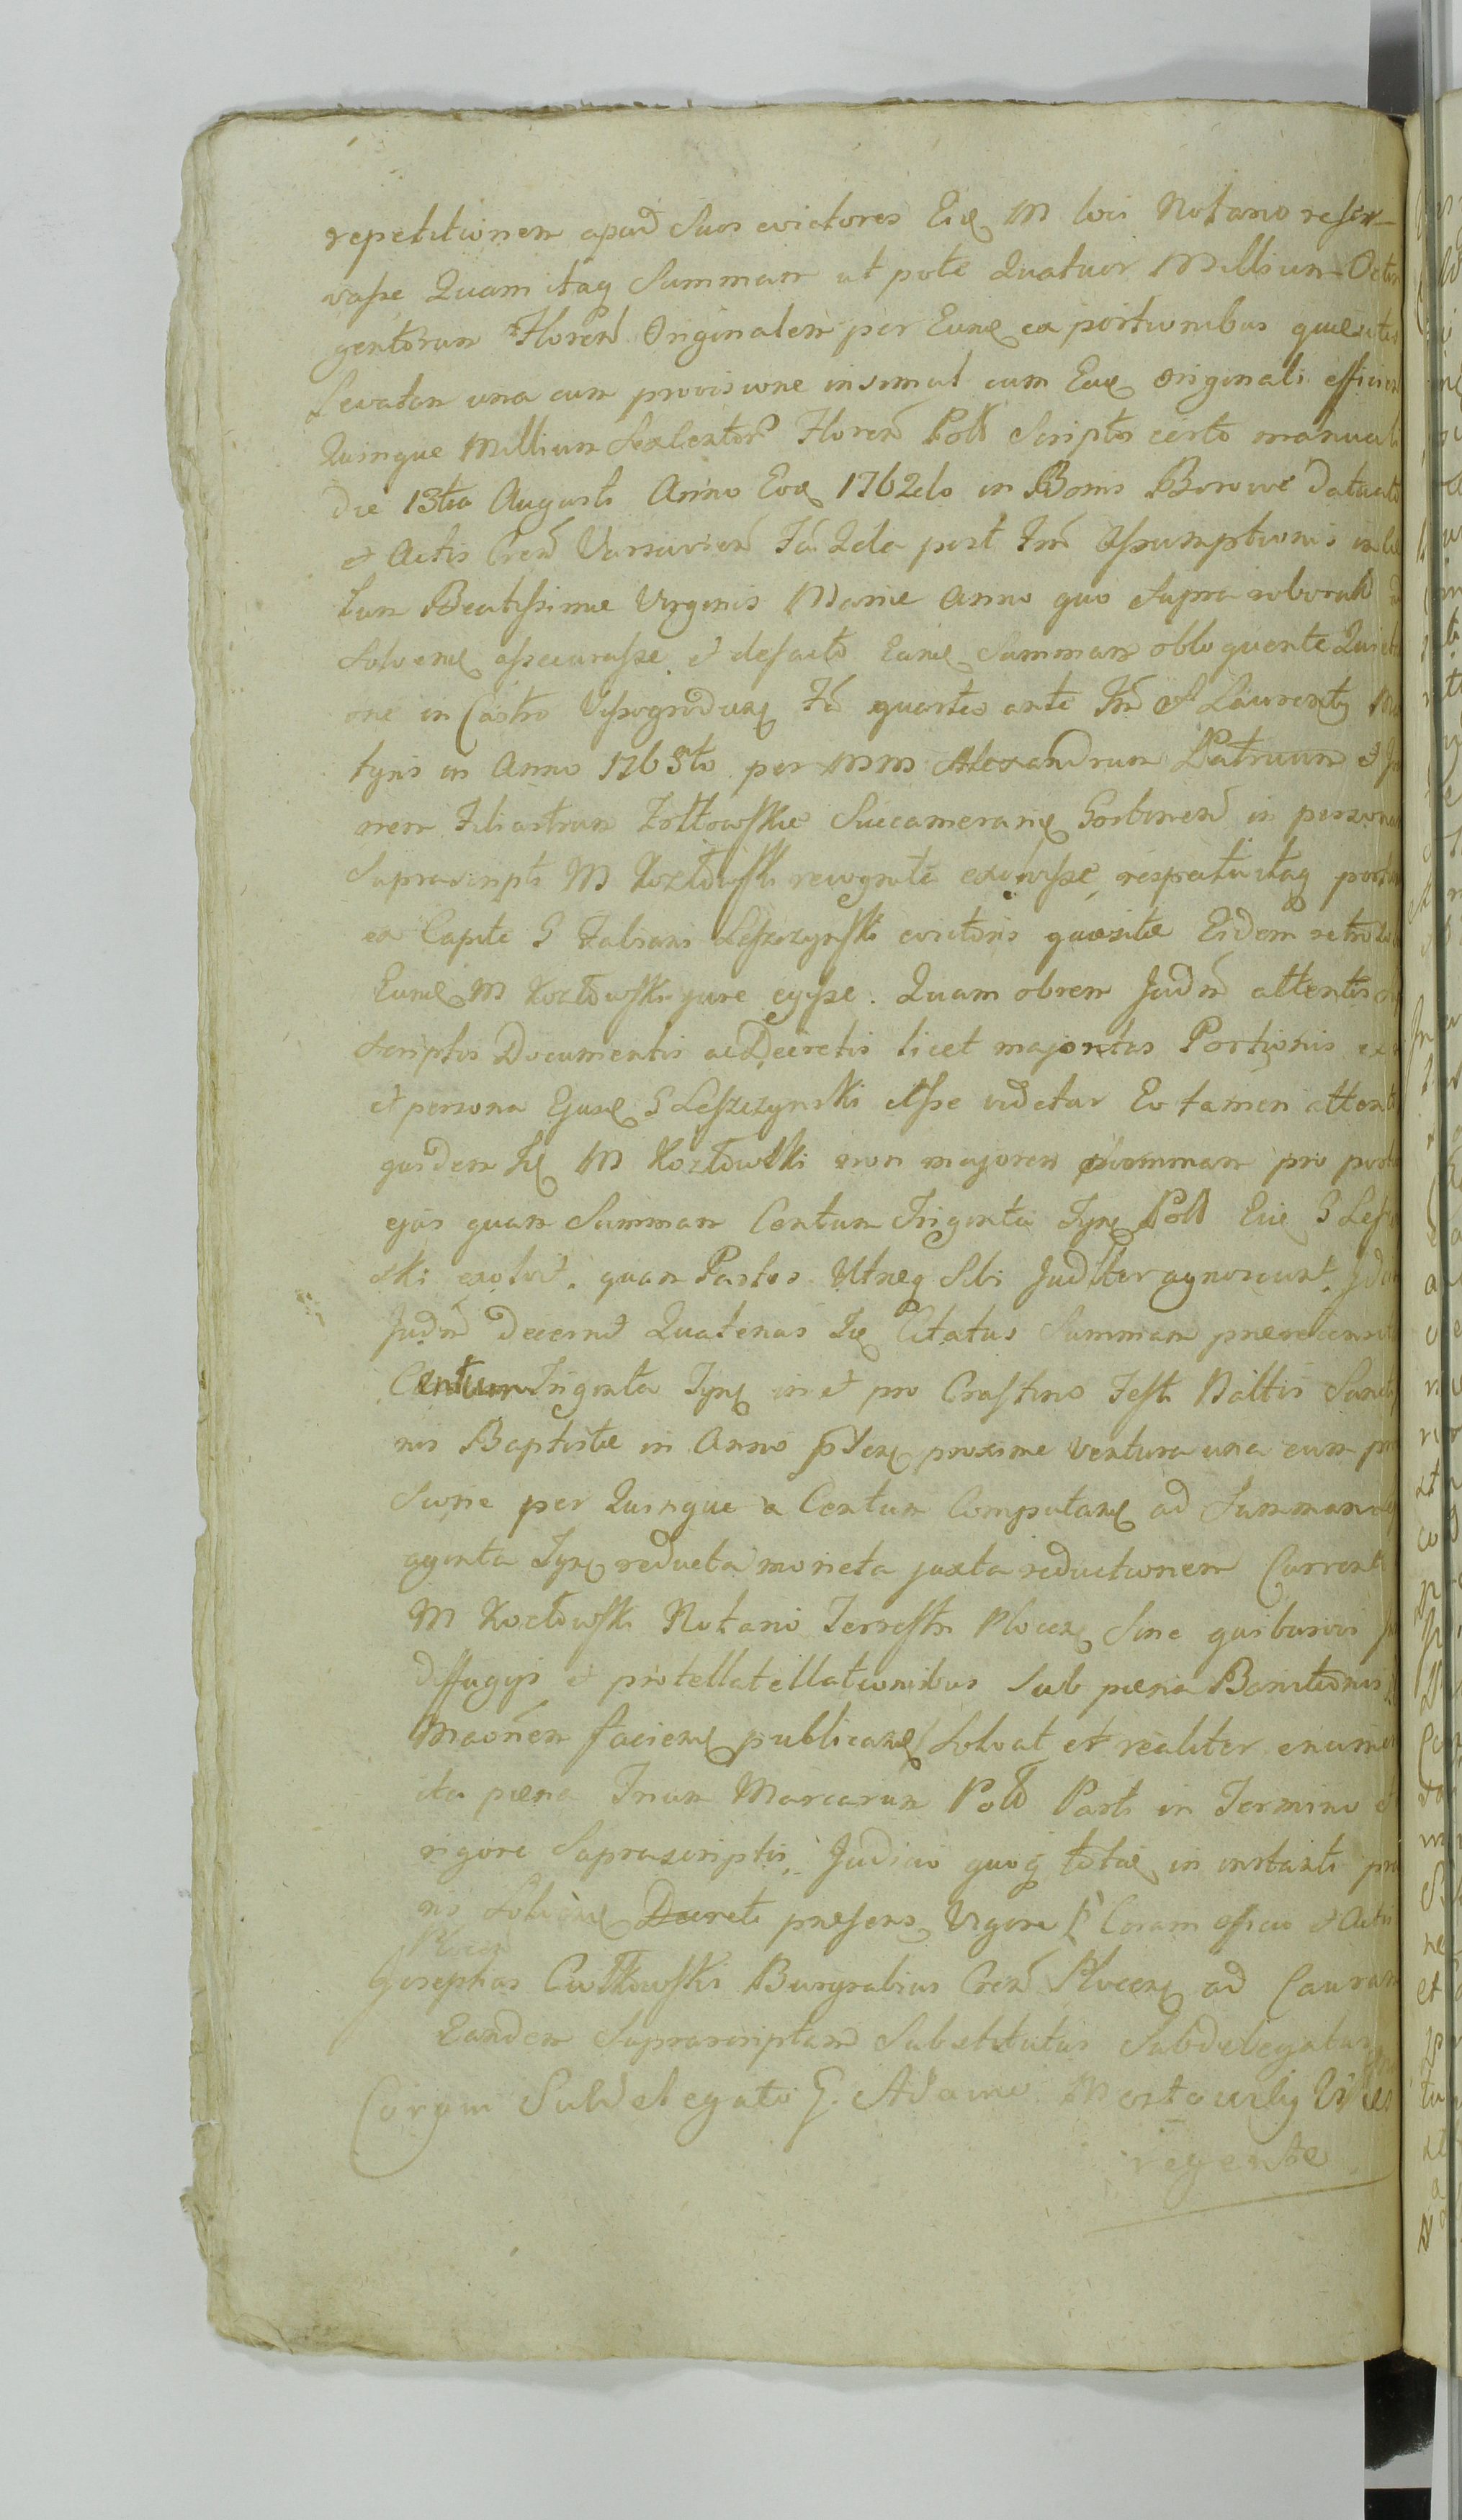 repetitionem apud Suos evictores Eid M loci Notario reser-
vasse Quam itaq Summam ut pote Quatuor Millium Octin
gentorum Floren Originalem per Eund ex portionibus quaesitis
Levatam una cum provisione insimul cum Ead originali efficien
Quinque Millium Sexcentor Floren Poll Scripto certo manuali
die 13tia Augusti Anno Eod 1762do in Bonis Borowe datuato
et Actis Cren Varsavien Fa 2da post Fm Assumptionis in Cae
lum Beatissimae Virginis Mariae Anno quo Supra roborato
Solvend assecurasse et defacto Eand Summam obloquente Quieta
one in Castro Vyssogroden Fa quarta ante Fm S Laurenty Mar
tyris in Anno 1765to per MM Alexandrum Patruum et
nem Filiastrum Zółtowskie Succamerarid Gostinen in personam
Suprascripti M Kozłowski recognita exolvisse, respectu itaq portio
ex Capite G Fabiani Leszczynski evictoris quaesitae Eidem
Eund M Kozłowski jure egisse. Quam obrem Judm attentis
Scriptis Documentis ac Decretis licet majoritas Portionis ex
et persona Ejusd G Leszczynski esse videtur Eo tamen attento
quidem Id M Kozłowski non majorem Summam pro portio
ejus quam Summam Centum Triginta Tynf Poll Eid G Lesz
ski exolvit, quam Partes Utraeq Sibi Judlter agnoscunt, Idcirco
Judm Decernit Quatenus Id Citatus Summam praerecensita
Centum Triginta Tynf in et pro Crastino Festi Nattis Sancti
nis Baptistae in Anno proxime ventura una cum pro
Sione per Quinque a Centum Computand ad Summam
aginta Tynf reducta moneta juxta reductionem Currente
M Kozłowski Notario Terrestri Plocen Sine quibusvis
diffugijs et protellatellationibus Sub paena Banitionis
Maonem faciend publicand Solvat et realiter enumeret
ita paena Trium Marcarum Poll Parti in Termino et
rigore Suprascriptis Judicio quoq totid in instanti pro
nis Solvend Decreti praesens Vigore Coram officio et Actis
Plocen
Josephus Ciołkowski Burgrabius Cren Plocen ad Causam
Eandem Suprascriptam Substitutus Subdelegatus
Coram Subdelegato G. Adamo
regente